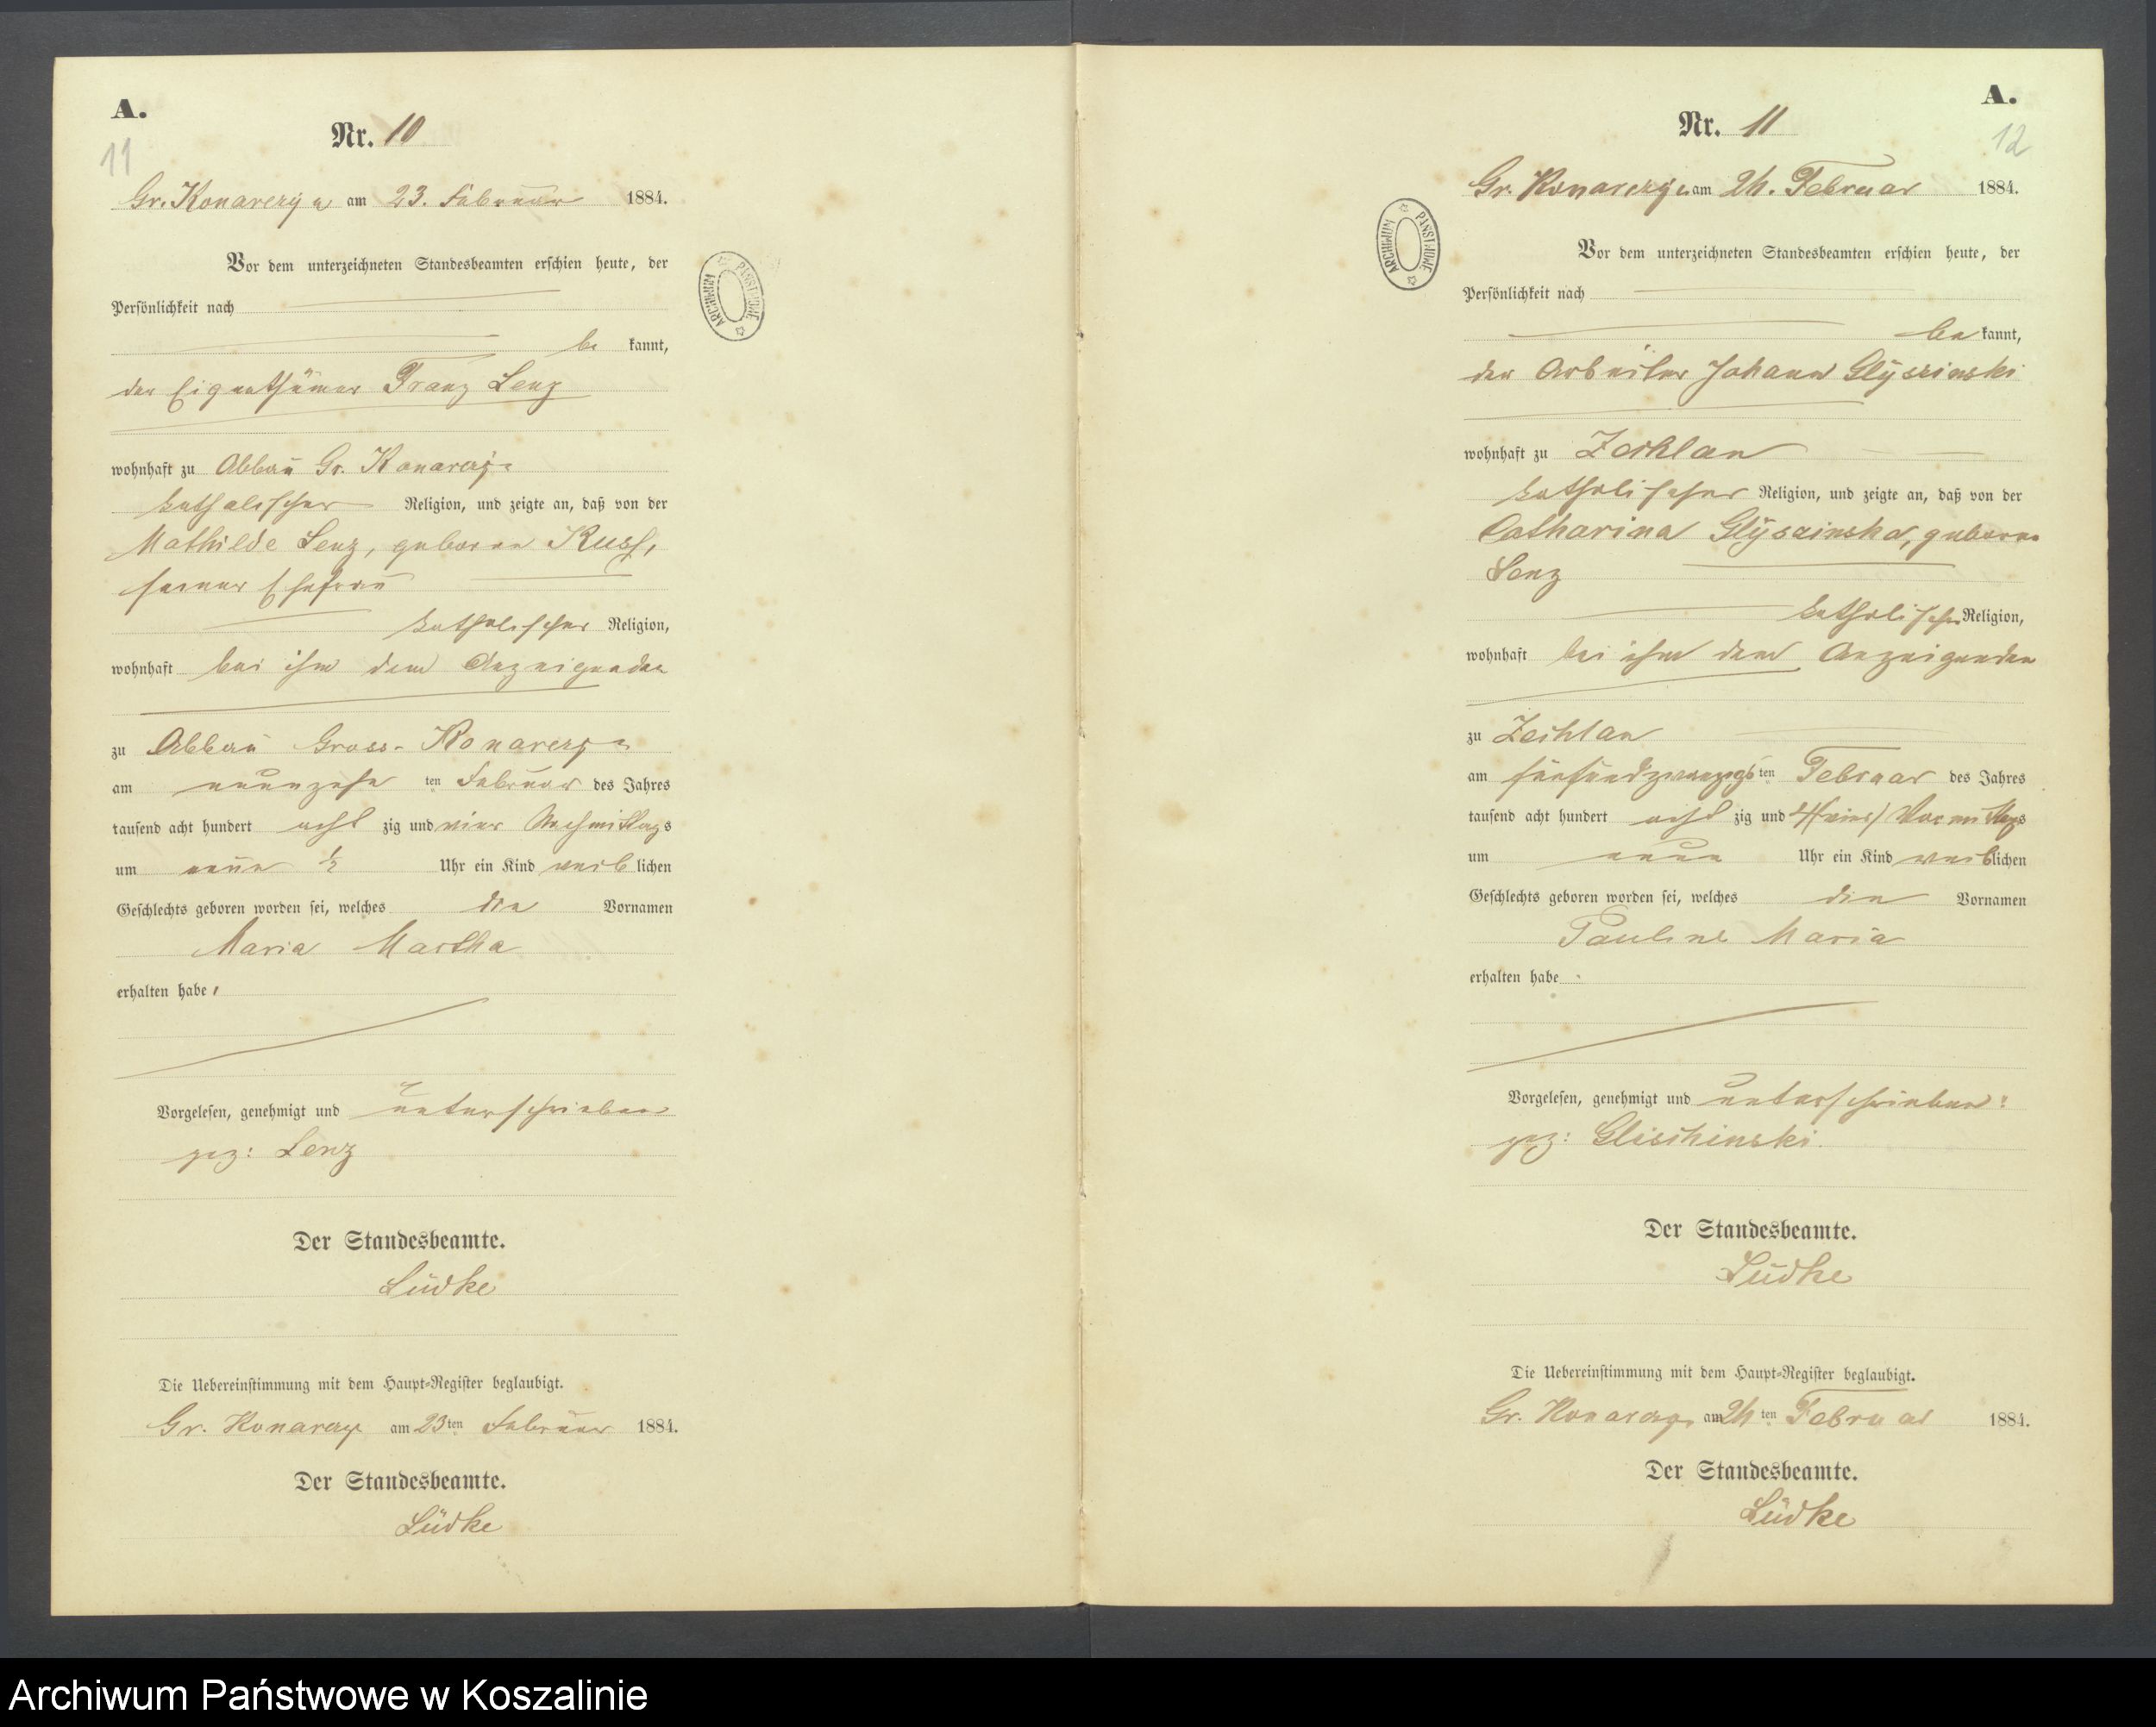 A.
11
Nr. 10
Gr. Konarczyn am 23. Februar 1884.
Vor dem unterzeichneten Standesbeamten erschien heute, der
Persönlichkeit nach
be kannt,
der Eigenthümer Franz Lenz
wohnhaft zu Abbau Gr. Konarczyn
katholischer Religion, und zeigte an, daß von der
Mathilde Lenz, geborne Russ,
seiner Ehefrau
katholischer Religion,
wohnhaft bei ihm dem Anzeigenden
zu Abbau Gross-Konarczyn
am neunzehn ten Februar des Jahres
tausend acht hundert acht zig und vier Nachmittags
um neun ½ Uhr ein Kind weib lichen
Geschlechts geboren worden sei, welches die Vornamen
Maria Martha
erhalten habe,
Vorgelesen, genehmigt und unterschrieben
gez: Lenz
Der Standesbeamte.
Lüdke
Die Uebereinstimmung mit dem Haupt-Register beglaubigt.
Gr. Konarczyn am 23ten Februar 1884.
Der Standesbeamte.
Lüdke
A.
12
Nr. 11
Gr. Konarczyn am Februar 1884.
Vor dem unterzeichneten Standesbeamten erschien heute, der
Persönlichkeit nach
be kannt,
der Arbeiter Johann Glyszinski
wohnhaft zu Zechlau
katholischer Religion, und zeigte an, daß von der
Catharina Glyszinska, geborne
Lenz
katholischer Religion,
wohnhaft bei ihm dem Anzeigenden
zu Zechlau
am fünfundzwanzigsten Februar des Jahres
tausend acht hundert acht zig und 4 (vier) Vormittags
um neun Uhr ein Kind weiblichen
Geschlechts geboren worden sei, welches die Vornamen
Pauline Maria
erhalten habe
Vorgelesen, genehmigt und unterschrieben:
gez: Glischinski.
Der Standesbeamte.
Lüdke
Die Uebereinstimmung mit dem Haupt-Register beglaubigt.
Gr. Konarczyn am ten Februar 1884.
Der Standesbeamte.
Lüdke
ARCHIWUM PAŃSTWOWE
ARCHIWUM PAŃSTWOWE
Archiwum Państwowe w Koszalinie